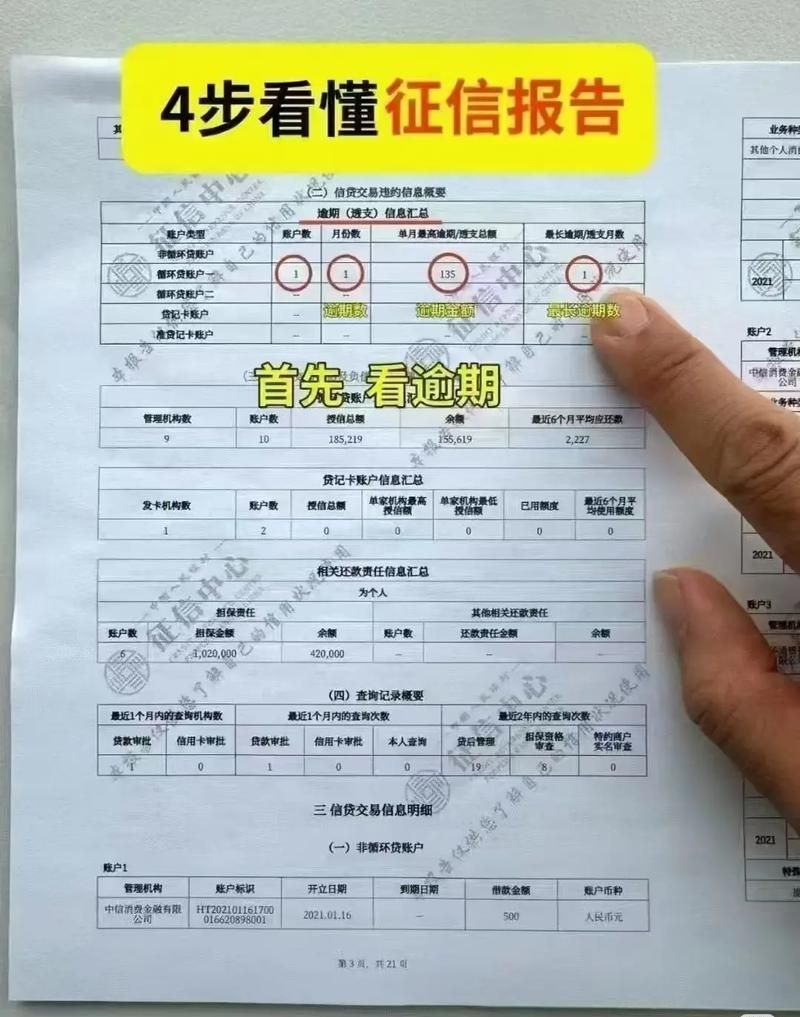 4步看懂征信报告
(二) 信贷交易违约信息概要
逾期（透支）信息汇总
账户类型 账户数 月份数 单月最高逾期/透支总额 最长逾期/透支月数
非循环贷账户
循环贷账户一 1 1 135 1
循环贷账户二 --
贷记卡账户 --
准贷记卡账户 -- --
逾期数 逾期金额 最长逾期数
首先 看逾期
管理机构数 账户数 授信总额 余额 最近6个月平均应还款
9 10 185,219 155,619 2,227
贷记卡账户信息汇总
发卡机构数 账户数 授信总额 单家机构最高授信额 单家机构最低授信额 已用额度 最近6个月平均使用额度
1 2 0 0 0 0 0
相关还款责任信息汇总
为个人
担保责任 其他相关还款责任
账户数 担保金额 余额 账户数 还款责任金额 余额
6 1,020,000 420,000 -- -- --
（四）查询记录概要
最近1个月内的查询机构数 最近1个月内的查询次数 最近2年内的查询次数
贷款审批 信用卡审批 贷款审批 信用卡审批 本人查询 贷后管理 担保资格审查 特约商户实名审查
1 0 1 0 0 19 8 0
三 信贷交易信息明细
（一）非循环贷账户
账户1
管理机构 账户标识 开立日期 到期日期 借款金额 账户币种
中信消费金融有限公司 HT202101161700016620898001 2021.01.16 -- 500 人民币元
第 3 页，共 21 页
业务种类
其他个人消费
2021
账户2
管理机构
中信消费金融有限公司
2021
账户3
管理机构
2021
征信中心